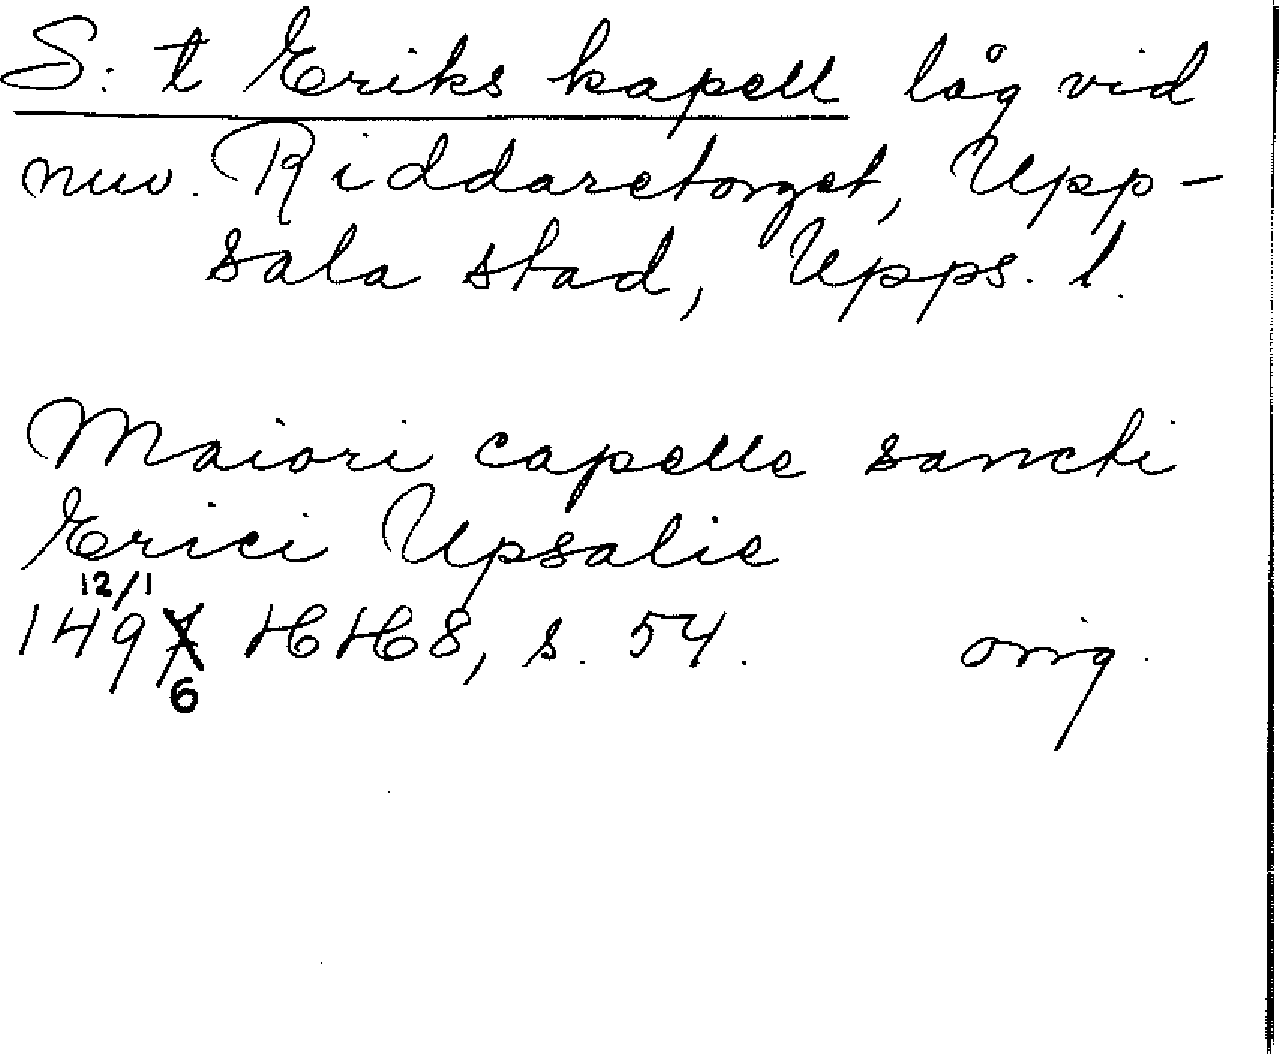 S:t Eriks kapell låg vid
nuv. Riddaretorget, Upp-
sala stad, Upps. l.
Maiori capelle sancti
Erici Upsalie
12/1
1497 HH 8, s. 54. orig.
6